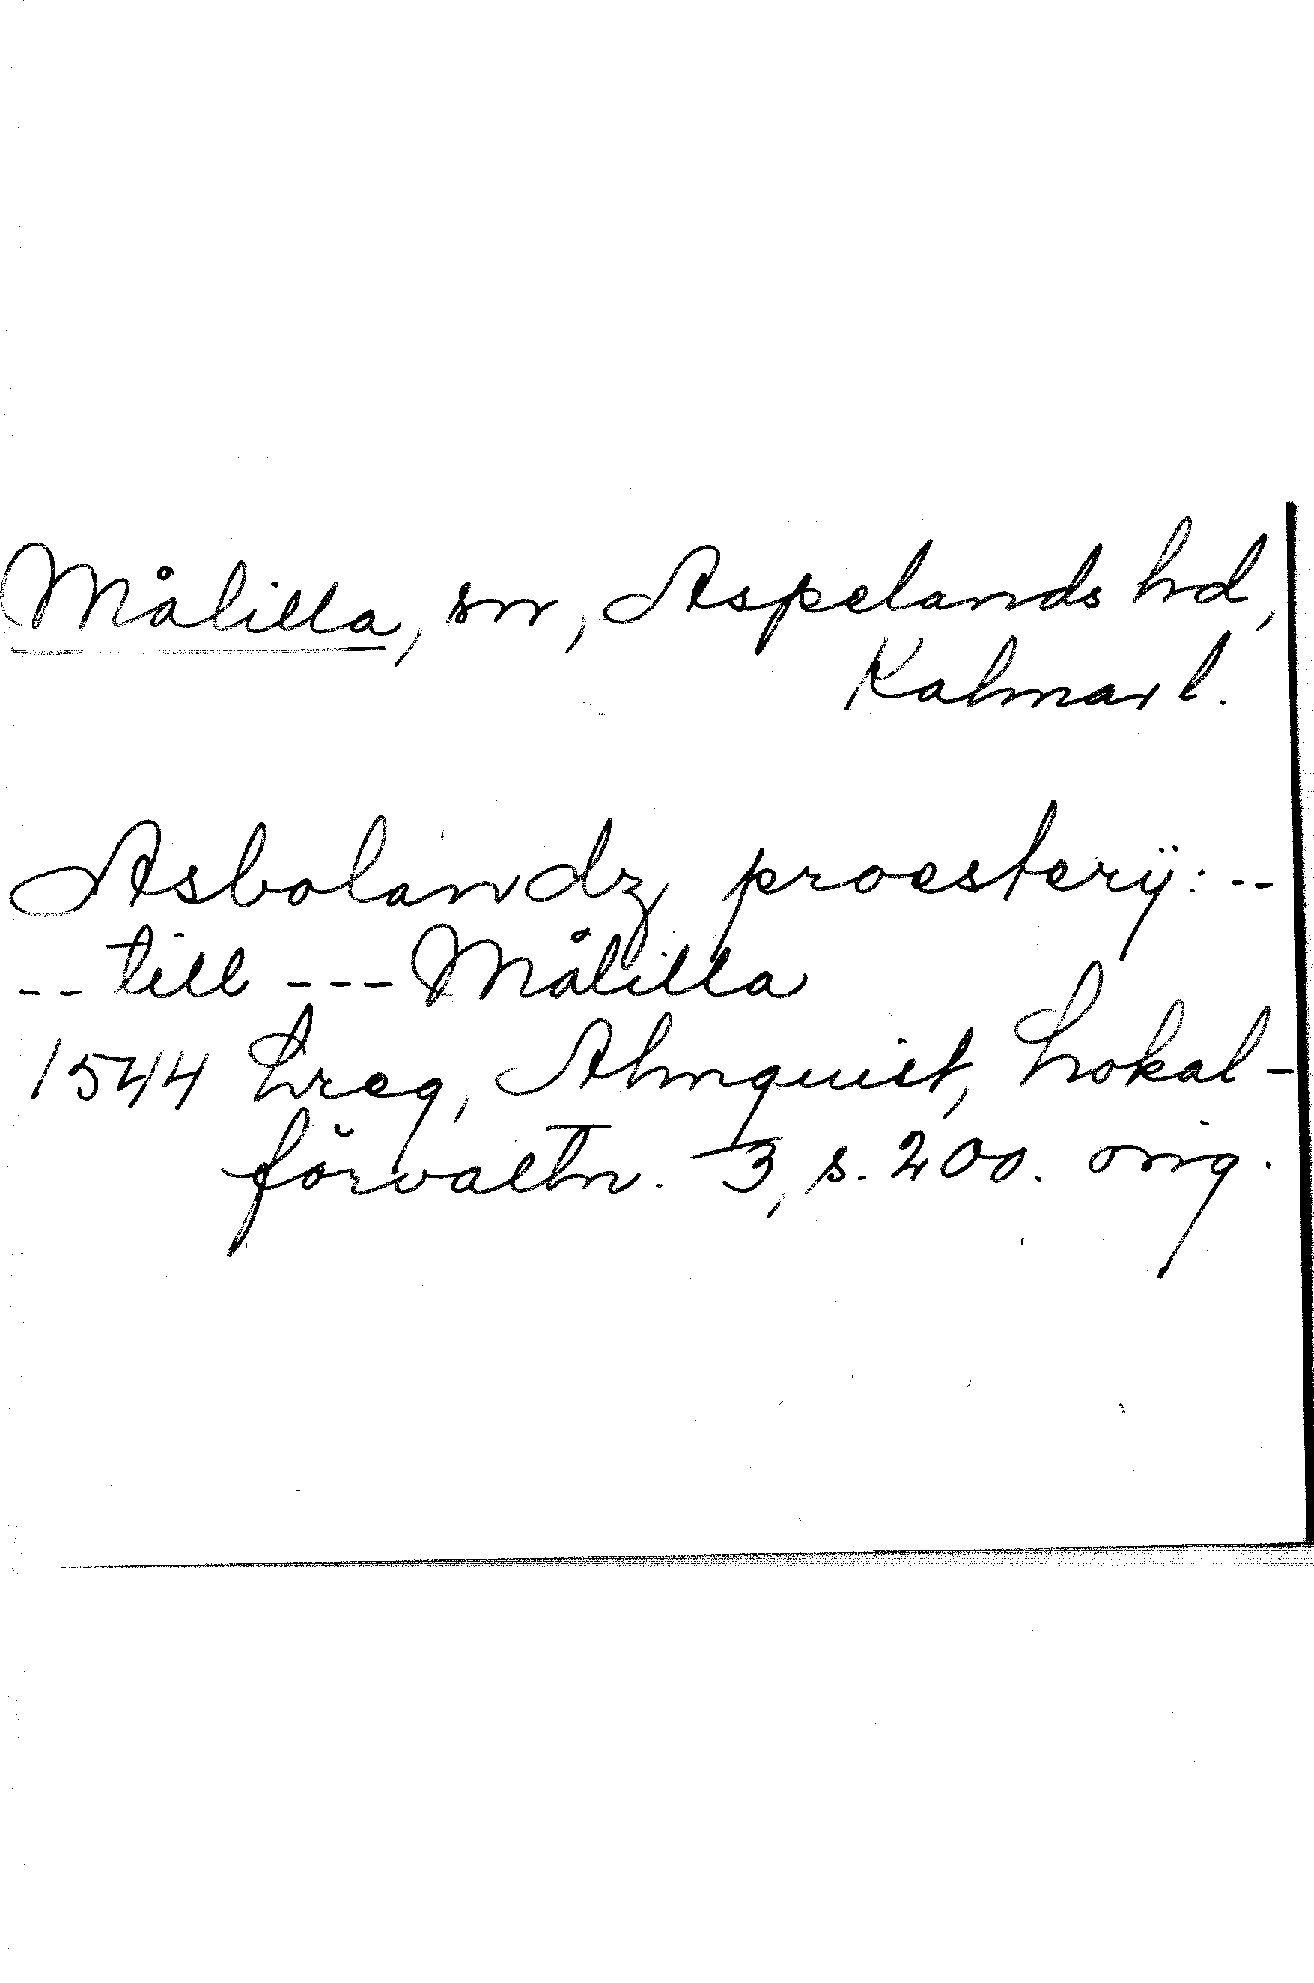 Målilla, sn, Aspelands hd,
Kalmar l.
Asbolandz proesterij: --
-- till --- Målilla
1544 Lreg, Almquist, Lokal-
förvaltn. 3, s. 200. orig.